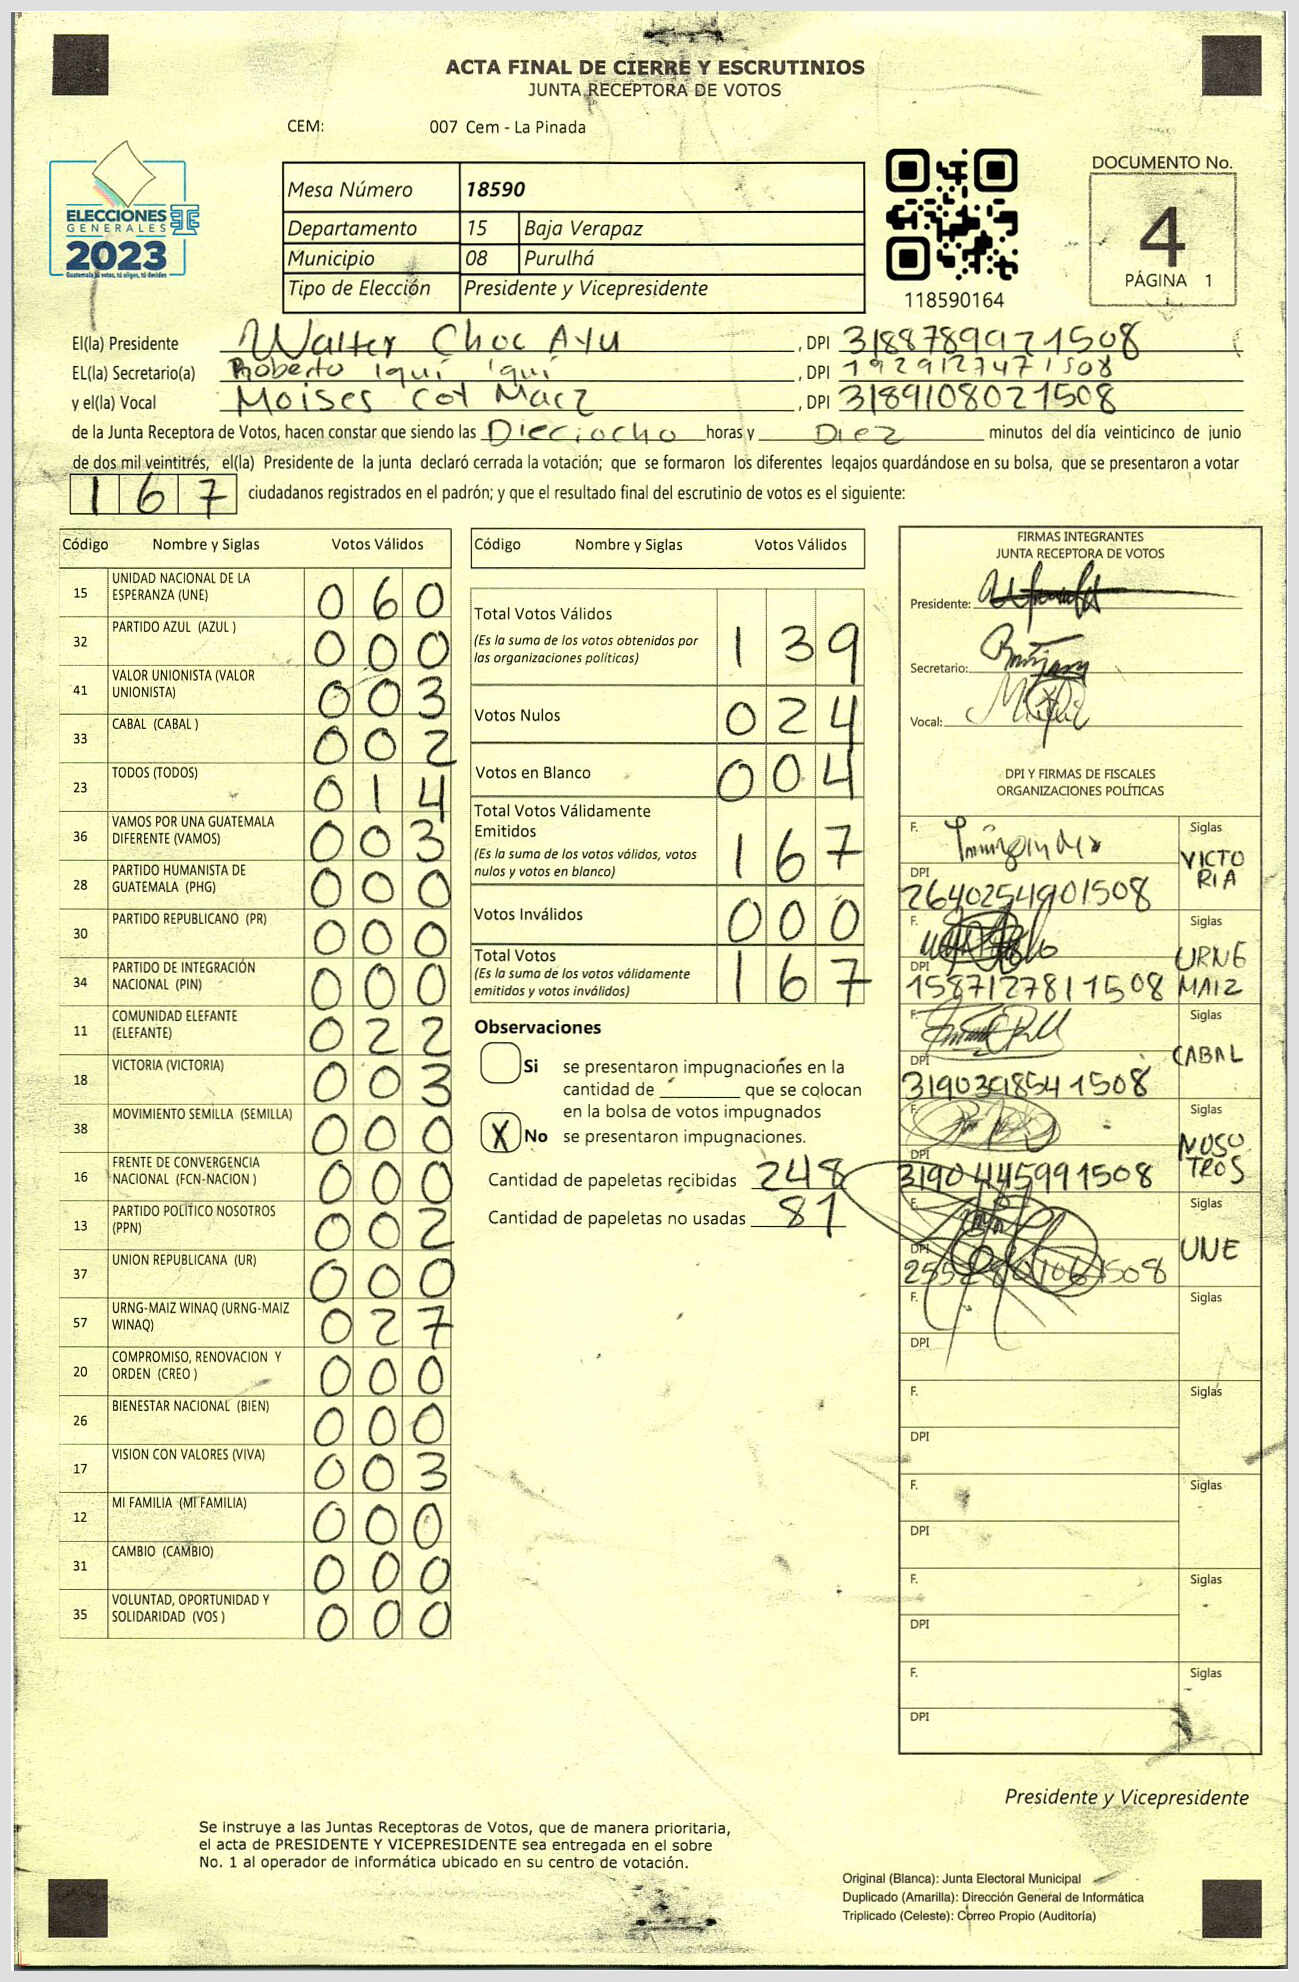 ACTA FINAL DE CIERRE Y ESCRUTINIOS
JUNTA RECEPTORA DE VOTOS
CEM: 007 Cem - La Pinada
ELECCIONES
GENERALES
2023
Guatemala tú votas, tú eliges, tú decides
Mesa Número 18590
Departamento 15 Baja Verapaz
Municipio 08 Purulhá
Tipo de Elección Presidente y Vicepresidente
118590164
DOCUMENTO No.
4
PÁGINA 1
El(la) Presidente Walter Choc Ayu , DPI 3188789971508
EL(la) Secretario(a) Roberto Iquí Iquí , DPI 1929127471508
y el(la) Vocal Moises Cot Maez , DPI 3189108021508
de la Junta Receptora de Votos, hacen constar que siendo las Dieciocho horas y Diez minutos del día veinticinco de junio
de dos mil veintitrés, el(la) Presidente de la junta declaró cerrada la votación; que se formaron los diferentes legajos guardándose en su bolsa, que se presentaron a votar
167 ciudadanos registrados en el padrón; y que el resultado final del escrutinio de votos es el siguiente:
Código Nombre y Siglas Votos Válidos
15 UNIDAD NACIONAL DE LA ESPERANZA (UNE) 060
32 PARTIDO AZUL (AZUL ) 000
41 VALOR UNIONISTA (VALOR UNIONISTA) 003
33 CABAL (CABAL ) 002
23 TODOS (TODOS) 014
36 VAMOS POR UNA GUATEMALA DIFERENTE (VAMOS) 003
28 PARTIDO HUMANISTA DE GUATEMALA (PHG) 000
30 PARTIDO REPUBLICANO (PR) 000
34 PARTIDO DE INTEGRACIÓN NACIONAL (PIN) 000
11 COMUNIDAD ELEFANTE (ELEFANTE) 022
18 VICTORIA (VICTORIA) 003
38 MOVIMIENTO SEMILLA (SEMILLA) 000
16 FRENTE DE CONVERGENCIA NACIONAL (FCN-NACION ) 000
13 PARTIDO POLITICO NOSOTROS (PPN) 002
37 UNION REPUBLICANA (UR) 000
57 URNG-MAIZ WINAQ (URNG-MAIZ WINAQ) 027
20 COMPROMISO, RENOVACION Y ORDEN (CREO ) 000
26 BIENESTAR NACIONAL (BIEN) 000
17 VISION CON VALORES (VIVA) 003
12 MI FAMILIA (MI FAMILIA) 000
31 CAMBIO (CAMBIO) 000
35 VOLUNTAD, OPORTUNIDAD Y SOLIDARIDAD (VOS ) 000
Código Nombre y Siglas Votos Válidos
Total Votos Válidos 139
(Es la suma de los votos obtenidos por
las organizaciones políticas)
Votos Nulos 024
Votos en Blanco 004
Total Votos Válidamente
Emitidos 167
(Es la suma de los votos válidos, votos
nulos y votos en blanco)
Votos Inválidos 000
Total Votos 167
(Es la suma de los votos válidamente
emitidos y votos inválidos)
Observaciones
Si se presentaron impugnaciones en la
cantidad de ________ que se colocan
en la bolsa de votos impugnados
X No se presentaron impugnaciones.
Cantidad de papeletas recibidas 248
Cantidad de papeletas no usadas 81
FIRMAS INTEGRANTES
JUNTA RECEPTORA DE VOTOS
Presidente:
Secretario:
Vocal:
DPI Y FIRMAS DE FISCALES
ORGANIZACIONES POLÍTICAS
F. Siglas VICTORIA
DPI 2640254901508
F. Siglas URNG MAIZ
DPI 1587127811508
F. Siglas CABAL
DPI 3190391854 1508
F. Siglas NOSOTROS
DPI 3190445991508
F. Siglas UNE
DPI
F. Siglas
DPI
F. Siglas
DPI
F. Siglas
DPI
F. Siglas
DPI
F. Siglas
DPI
Presidente y Vicepresidente
Se instruye a las Juntas Receptoras de Votos, que de manera prioritaria,
el acta de PRESIDENTE Y VICEPRESIDENTE sea entregada en el sobre
No. 1 al operador de informática ubicado en su centro de votación.
Original (Blanca): Junta Electoral Municipal
Duplicado (Amarilla): Dirección General de Informática
Triplicado (Celeste): Correo Propio (Auditoría)